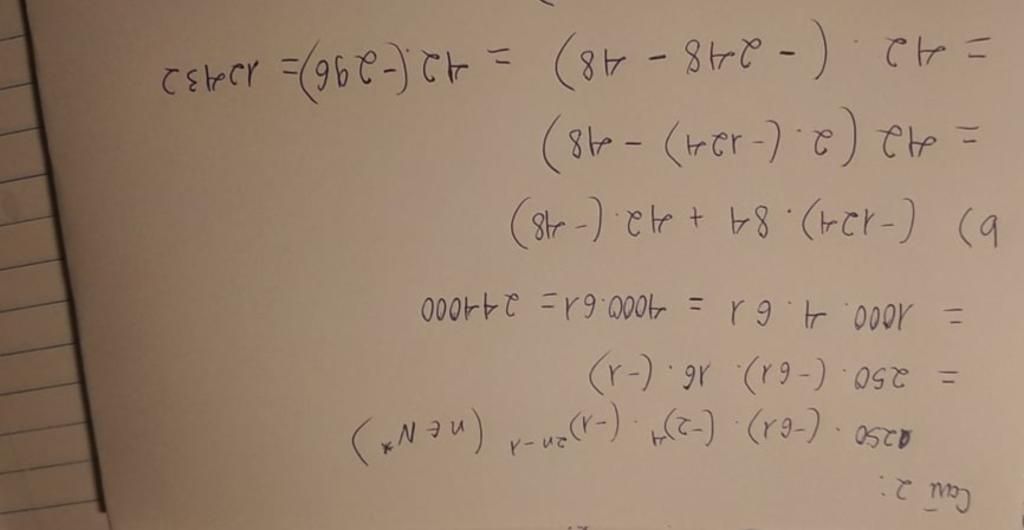 Câu 2:
a 250 . (-61) . (-2)⁴ . (-1)²ⁿ⁻¹ (n ∈ N*)
= 250 . (-61) . 16 . (-1)
= 1000 . 4 . 61 = 4000.61 = 244000
b) (-124) . 84 + 42 . (-48)
= 42 (2 . (-124) - 48)
= 42 . (- 248 - 48) = 42.(-296) = 12432